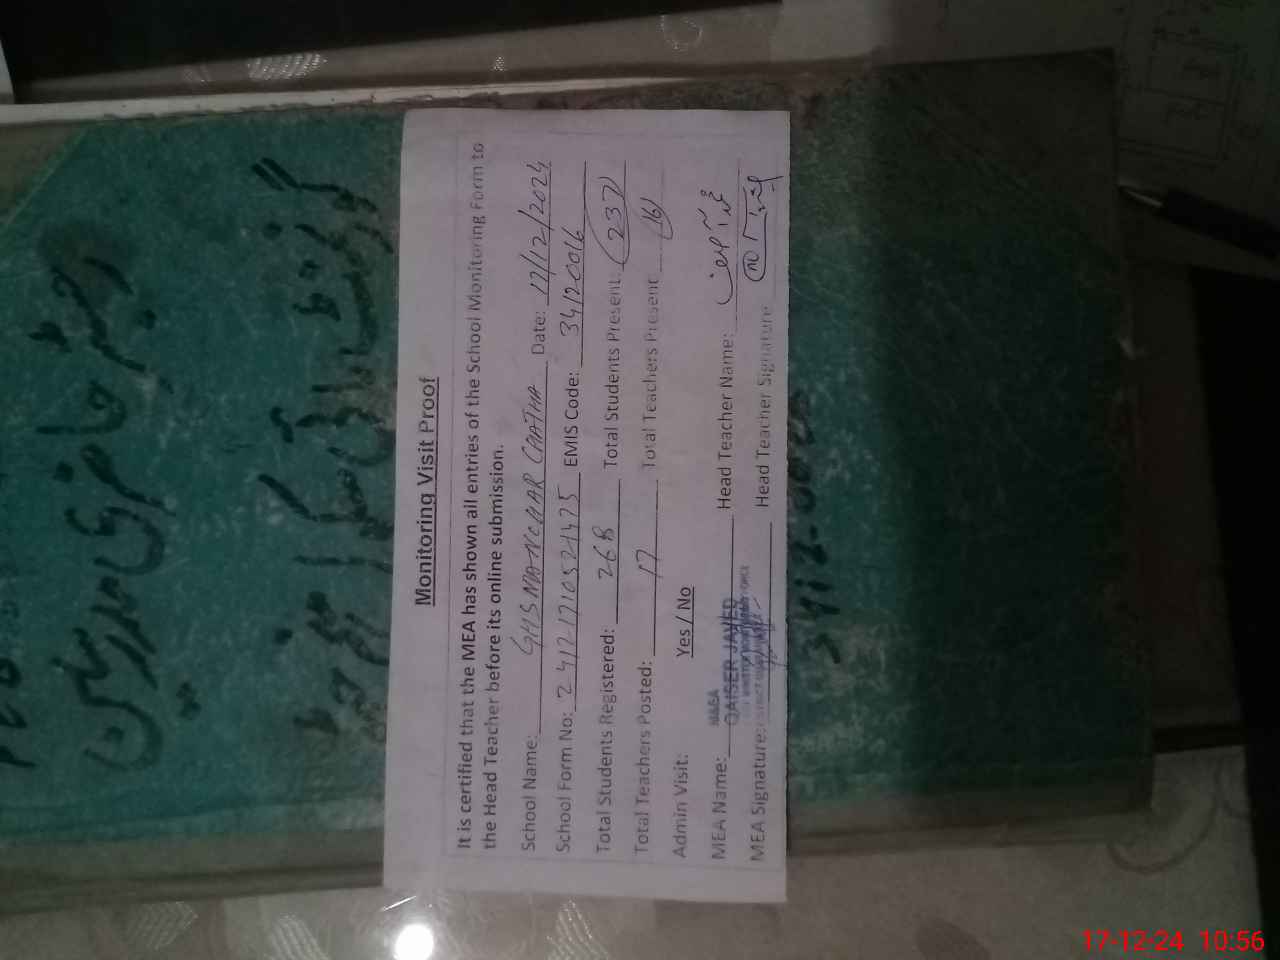 Monitoring Visit Proof
It is certified that the MEA has shown all entries of the School Monitoring Form to
the Head Teacher before its online submission.
School Name: GHS MANCHAR CHATHA Date: 17/12/2024
School Form No: 2412-1710521475 EMIS Code: 34120016
Total Students Registered: 268 Total Students Present: 237
Total Teachers Posted: 17 Total Teachers Present: 16
Admin Visit: Yes / No
MEA Name: QAISER JAVED Head Teacher Name:
MEA Signature: Head Teacher Signature
رجسٹر حاضری مدرسین
گورنمنٹ ہائی سکول منچر چٹھہ
17-12-24 10:56